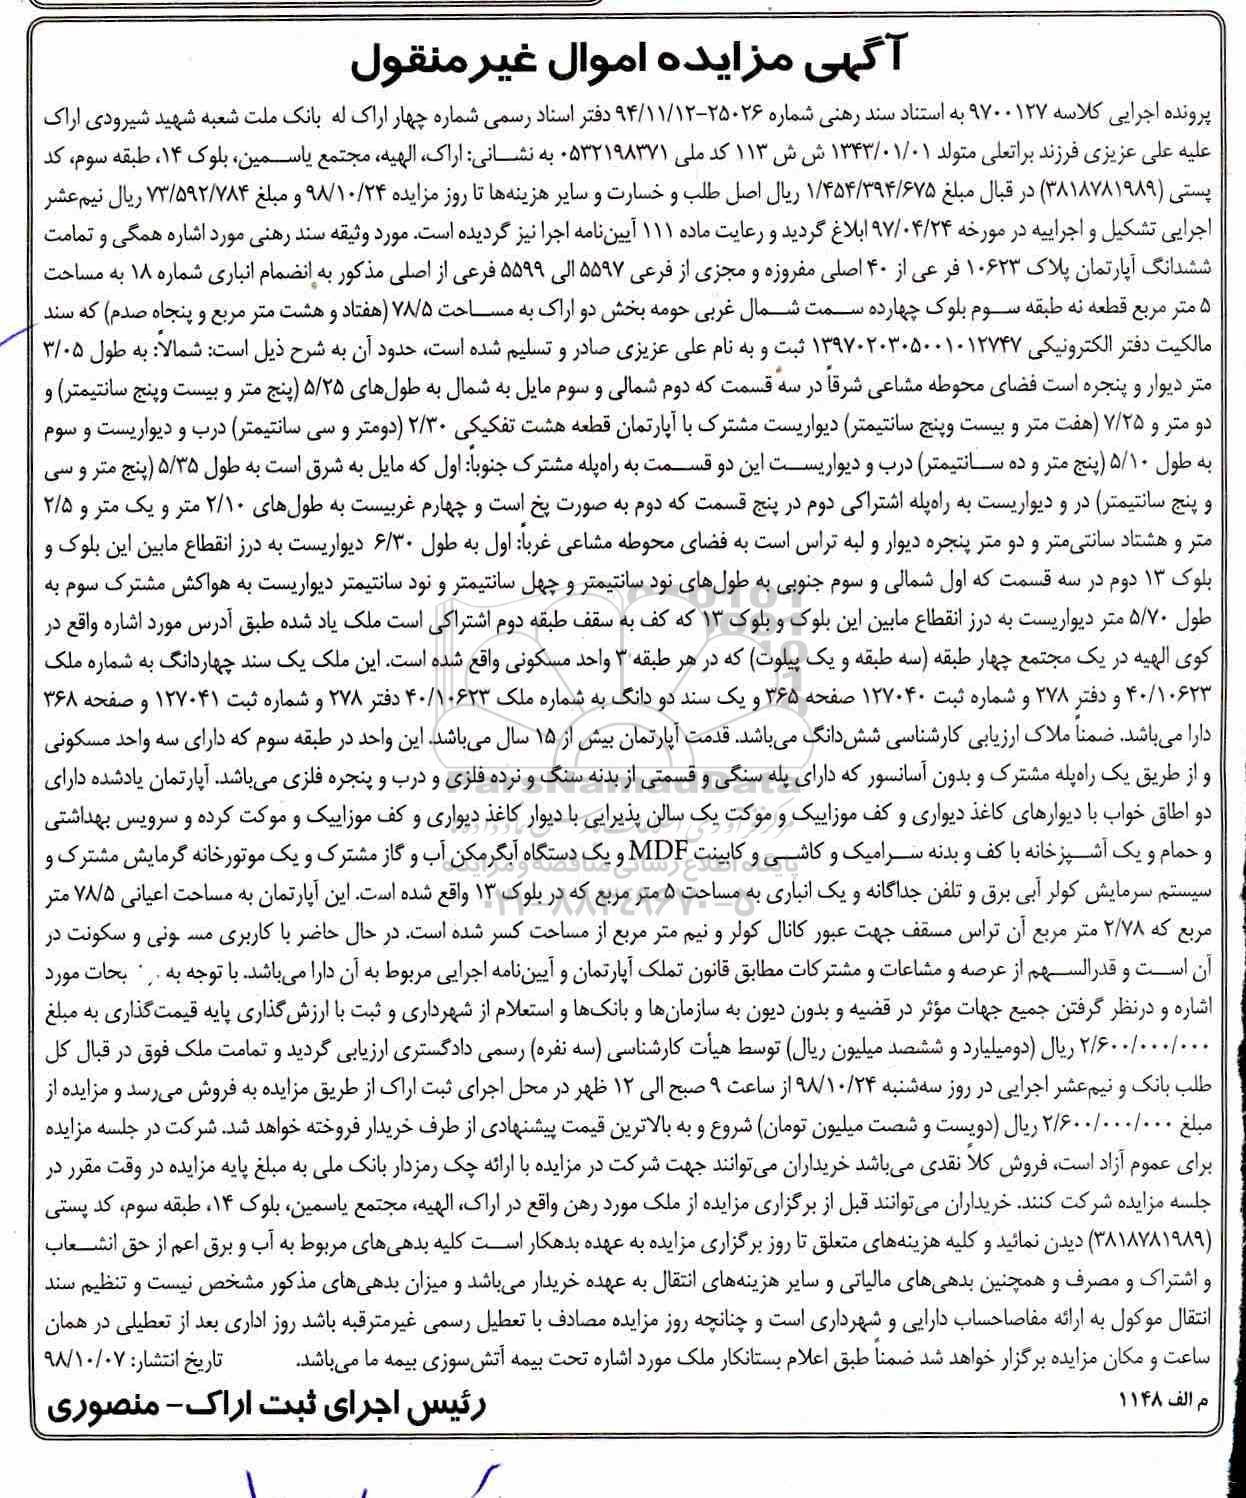 آگهی مزایده اموال غیرمنقول
پرونده اجرایی کلاسه ۹۷۰۰۱۲۷ به استناد سند رهنی شماره ۲۵۰۲۶-۹۴/۱۱/۱۲ دفتر اسناد رسمی شماره چهار اراک له بانک ملت شعبه شهید شیرودی اراک
علیه علی عزیزی فرزند براتعلی متولد ۱۳۴۳/۰۱/۰۱ ش ش ۱۱۳ کد ملی ۰۵۳۲۱۹۸۳۷۱ به نشانی: اراک، الهیه، مجتمع یاسمین، بلوک ۱۴، طبقه سوم، کد
پستی (۳۸۱۸۷۸۱۹۸۹) در قبال مبلغ ۱/۴۵۴/۳۹۴/۶۷۵ ریال اصل طلب و خسارت و سایر هزینه‌ها تا روز مزایده ۹۸/۱۰/۲۴ و مبلغ ۷۳/۵۹۲/۷۸۴ ریال نیم‌عشر
اجرایی تشکیل و اجراییه در مورخه ۹۷/۰۴/۲۴ ابلاغ گردید و رعایت ماده ۱۱۱ آیین‌نامه اجرا نیز گردیده است. مورد وثیقه سند رهنی مورد اشاره همگی و تمامت
ششدانگ آپارتمان پلاک ۱۰۶۲۳ فر عی از ۴۰ اصلی مفروزه و مجزی از فرعی ۵۵۹۷ الی ۵۵۹۹ فرعی از اصلی مذکور به انضمام انباری شماره ۱۸ به مساحت
۵ متر مربع قطعه نه طبقه سوم بلوک چهارده سمت شمال غربی حومه بخش دو اراک به مساحت ۷۸/۵ (هفتاد و هشت متر مربع و پنجاه صدم) که سند
مالکیت دفتر الکترونیکی ۱۳۹۷۰۲۰۳۰۵۰۰۱۰۱۲۷۴۷ ثبت و به نام علی عزیزی صادر و تسلیم شده است، حدود آن به شرح ذیل است: شمالاً: به طول ۳/۰۵
متر دیوار و پنجره است فضای محوطه مشاعی شرقاً در سه قسمت که دوم شمالی و سوم مایل به شمال به طول‌های ۵/۲۵ (پنج متر و بیست وپنج سانتیمتر) و
دو متر و ۷/۲۵ (هفت متر و بیست وپنج سانتیمتر) دیواریست مشترک با آپارتمان قطعه هشت تفکیکی ۲/۳۰ (دومتر و سی سانتیمتر) درب و دیواریست و سوم
به طول ۵/۱۰ (پنج متر و ده سانتیمتر) درب و دیواریست این دو قسمت به راه‌پله مشترک جنوباً: اول که مایل به شرق است به طول ۵/۳۵ (پنج متر و سی
و پنج سانتیمتر) در و دیواریست به راه‌پله اشتراکی دوم در پنج قسمت که دوم به صورت پخ است و چهارم غربیست به طول‌های ۲/۱۰ متر و یک متر و ۲/۵
متر و هشتاد سانتی‌متر و دو متر پنجره دیوار و لبه تراس است به فضای محوطه مشاعی غرباً: اول به طول ۶/۳۰ دیواریست به درز انقطاع مابین این بلوک و
بلوک ۱۳ دوم در سه قسمت که اول شمالی و سوم جنوبی به طول‌های نود سانتیمتر و چهل سانتیمتر و نود سانتیمتر دیواریست به هواکش مشترک سوم به
طول ۵/۷۰ متر دیواریست به درز انقطاع مابین این بلوک و بلوک ۱۳ که کف به سقف طبقه دوم اشتراکی است ملک یاد شده طبق آدرس مورد اشاره واقع در
کوی الهیه در یک مجتمع چهار طبقه (سه طبقه و یک پیلوت) که در هر طبقه ۳ واحد مسکونی واقع شده است. این ملک یک سند چهاردانگ به شماره ملک
۴۰/۱۰۶۲۳ و دفتر ۲۷۸ و شماره ثبت ۱۲۷۰۴۰ صفحه ۳۶۵ و یک سند دو دانگ به شماره ملک ۴۰/۱۰۶۲۳ دفتر ۲۷۸ و شماره ثبت ۱۲۷۰۴۱ و صفحه ۳۶۸
دارا می‌باشد. ضمناً ملاک ارزیابی کارشناسی شش‌دانگ می‌باشد. قدمت آپارتمان بیش از ۱۵ سال می‌باشد. این واحد در طبقه سوم که دارای سه واحد مسکونی
و از طریق یک راه‌پله مشترک و بدون آسانسور که دارای پله سنگی و قسمتی از بدنه سنگ و نرده فلزی و درب و پنجره فلزی می‌باشد. آپارتمان یادشده دارای
دو اطاق خواب با دیوارهای کاغذ دیواری و کف موزاییک و موکت یک سالن پذیرایی با دیوار کاغذ دیواری و کف موزاییک و موکت کرده و سرویس بهداشتی
و حمام و یک آشپزخانه با کف و بدنه سرامیک و کاشی و کابینت MDF و یک دستگاه آبگرمکن آب و گاز مشترک و یک موتورخانه گرمایش مشترک و
سیستم سرمایش کولر آبی برق و تلفن جداگانه و یک انباری به مساحت ۵ متر مربع که در بلوک ۱۳ واقع شده است. این آپارتمان به مساحت اعیانی ۷۸/۵ متر
مربع که ۲/۷۸ متر مربع آن تراس مسقف جهت عبور کانال کولر و نیم متر مربع از مساحت کسر شده است. در حال حاضر با کاربری و سکونت در
آن است و قدرالسهم از عرصه و مشاعات و مشترکات مطابق قانون تملک آپارتمان و آیین‌نامه اجرایی مربوط به آن دارا می‌باشد. با توجه به مورد
اشاره و درنظر گرفتن جمیع جهات مؤثر در قضیه و بدون دیون به سازمان‌ها و بانک‌ها و استعلام از شهرداری و ثبت با ارزش‌گذاری پایه قیمت‌گذاری به مبلغ
۲/۶۰۰/۰۰۰/۰۰۰ ریال (دومیلیارد و ششصد میلیون ریال) توسط هیأت کارشناسی (سه نفره) رسمی دادگستری ارزیابی گردید و تمامت ملک فوق در قبال کل
طلب بانک و نیم‌عشر اجرایی در روز سه‌شنبه ۹۸/۱۰/۲۴ از ساعت ۹ صبح الی ۱۲ ظهر در محل اجرای ثبت اراک از طریق مزایده به فروش می‌رسد و مزایده از
مبلغ ۲/۶۰۰/۰۰۰/۰۰۰ ریال (دویست و شصت میلیون تومان) شروع و به بالاترین قیمت پیشنهادی از طرف خریدار فروخته خواهد شد. شرکت در جلسه مزایده
برای عموم آزاد است، فروش کلاً نقدی می‌باشد خریداران می‌توانند جهت شرکت در مزایده با ارائه چک رمزدار بانک ملی به مبلغ پایه مزایده در وقت مقرر در
جلسه مزایده شرکت کنند. خریداران می‌توانند قبل از برگزاری مزایده از ملک مورد رهن واقع در اراک، الهیه، مجتمع یاسمین، بلوک ۱۴، طبقه سوم، کد پستی
(۳۸۱۸۷۸۱۹۸۹) دیدن نمائید و کلیه هزینه‌های متعلق تا روز برگزاری مزایده به عهده بدهکار است کلیه بدهی‌های مربوط به آب و برق اعم از حق انشعاب
و اشتراک و مصرف و همچنین بدهی‌های مالیاتی و سایر هزینه‌های انتقال به عهده خریدار می‌باشد و میزان بدهی‌های مذکور مشخص نیست و تنظیم سند
انتقال موکول به ارائه مفاصاحساب دارایی و شهرداری است و چنانچه روز مزایده مصادف با تعطیل رسمی غیرمترقبه باشد روز اداری بعد از تعطیلی در همان
ساعت و مکان مزایده برگزار خواهد شد ضمناً طبق اعلام بستانکار ملک مورد اشاره تحت بیمه آتش‌سوزی بیمه ما می‌باشد. تاریخ انتشار: ۹۸/۱۰/۰۷
م الف ۱۱۴۸ رئیس اجرای ثبت اراک- منصوری
ParsNamadData
پایگاه اطلاع رسانی مناقصه و مزایده
۰۲۱-۸۸۳۴۹۶۷۰-۵